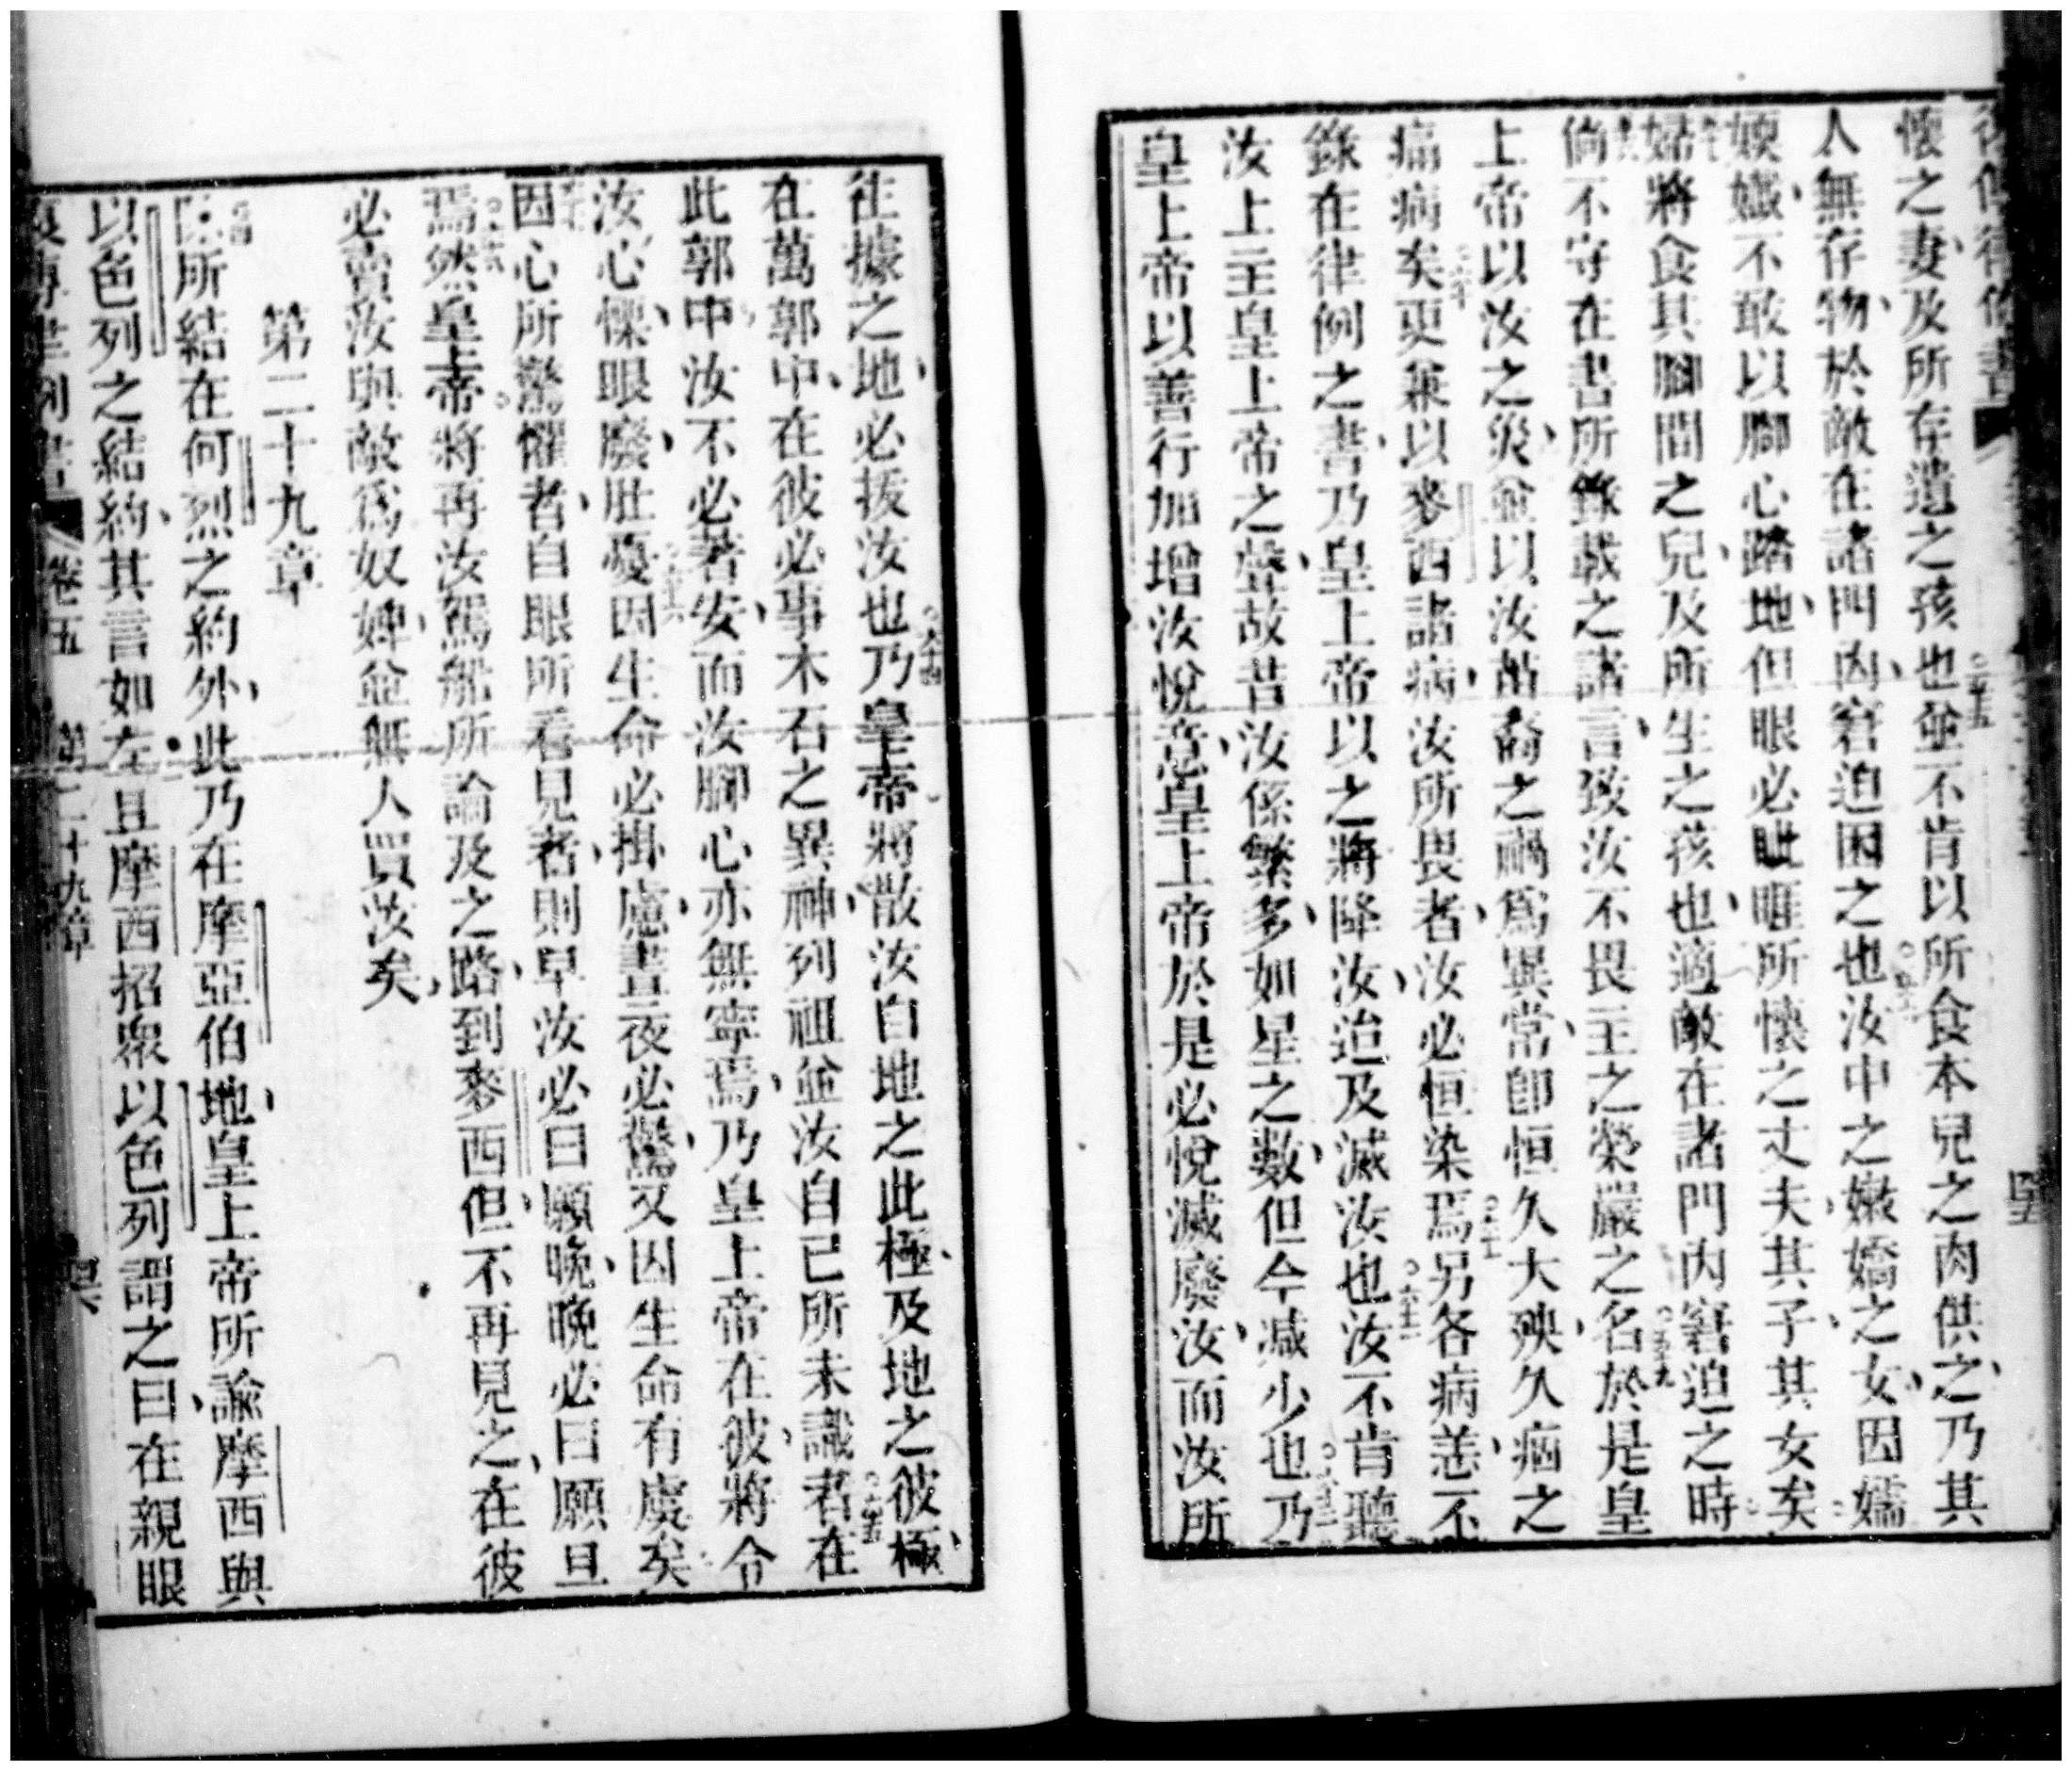 復傳律例書
懷之妻及所存遺之孩也○五十五並不肯以所食本兒之肉供之乃其
人無存物於敵在諸門內窘迫困之也○五十六汝中之嫩嬌之女因嬬
媆孅不敢以腳心踏地但眼必眦睚所懷之丈夫其子其女矣
婦將食其腳間之兒及所生之孩也適敵在諸門內窘迫之時
倘不守在書所錄載之諸言致汝不畏主之榮嚴之名○五十九於是皇
上帝以汝之災並以汝苗裔之禍爲異常卽恒久大殃久痼之
痛病矣○六十更兼以麥西諸病汝所畏者汝必恒染焉○六十一另各病恙不
錄在律例之書乃皇上帝以之將降汝迨及滅汝也○六十二汝不肯聽
汝上主皇上帝之聲故昔汝係繁多如星之數但今减少也○六十三乃
皇上帝以善行加增汝悅意皇上帝於是必悅滅廢汝而汝所
往據之地必拔汝也○六十四乃皇上帝將散汝自地之此極及地之彼極
在萬郭中在彼必事木石之異神列祖並汝自己所未識者○六十五在
此郭中汝不必著安而汝腳心亦無寧焉乃皇上帝在彼將令
汝心慄眼廢肚憂○六十六因生命必掛慮晝夜必驚又因生命有虞矣
因心所驚懼者自眼所看見者則早汝必曰願晚晚必曰願旦
焉○六十八然皇上帝將再汝駕船所論及之路到麥西但不再見之在彼
必賣汝與敵爲奴婢並無人買汝矣
第二十九章
所結在何烈之約外此乃在摩亞伯地皇上帝所諭摩西與
以色列之結約其言如左○二且摩西招衆以色列謂之曰在親眼
卷五 第二十九章